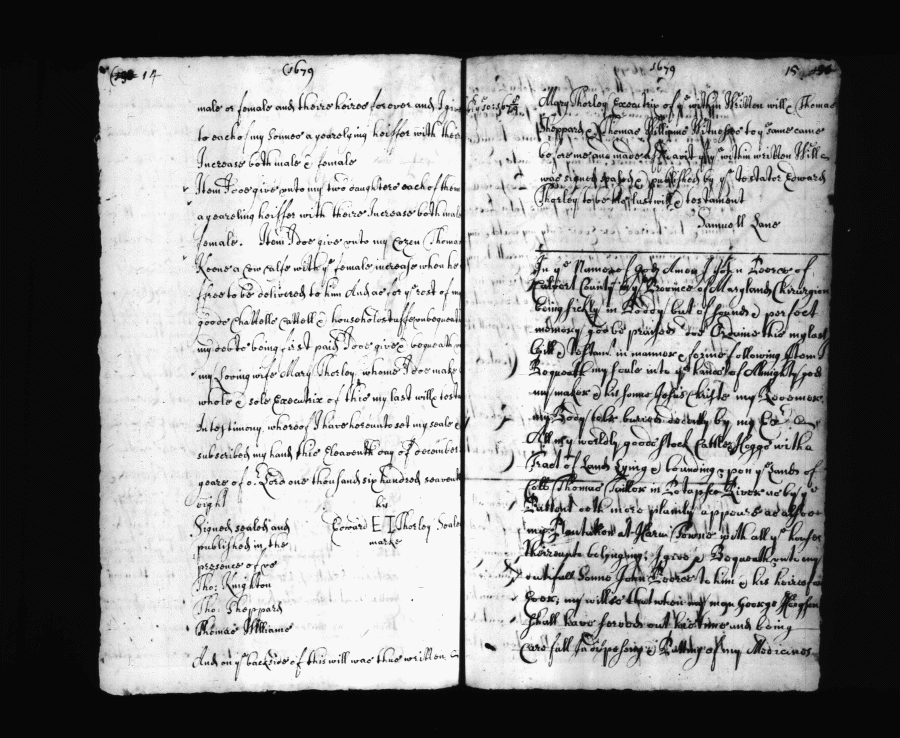 14
1679
male or female and theire heires forever and I give
to each of my Sonnes a yearelying heiffer with theire
Increase both male & female
Item I doe give unto my two daughters each of them
a yeareling heiffer with theire Increase both male
female. Item I doe give unto my Cozen Thomas
Keene a Cow calfe with ye female increase when he
free to be delivered to him And as for ye rest of my
goods Chattells Cattell & household stuffe unbequeath
my debts being first paid I doe give & bequeath
my Loving wife Mary Thorley, whome I doe make
whole & sole Executrix of this my last will & testa
In testimony whereof I have hereunto set my seale &
subscribed my hand this Eleaventh day of december
yeare of or Lord one thousand six hundred seavent
eight
his
Signed sealed and Edward E T Thorley Seale
published in the marke
presence of us
Tho: Knighton
Tho: Sheppard
Thomas Williams
And on ye backside of this will was thus written
1679
15
Mary Thorley Executrix of ye within Written will & Thomas
Sheppard & Thomas Williams Witnesses to ye same came
before me and made Affidavit ye within written Will
was signed sealed & published by ye testator Edward
Thorley to be his last will & testament
Samuell Lane
In ye Name of God Amen I John Peerce of
Calvert County in ye Province of Maryland Chirurgion
being sickly in Body but of sound & perfect
memory god be praised doe Ordaine this my last
Will & Testamt in manner & forme following Item I
Bequeath my soule into ye hands of Almighty god
my maker & his sonne Jesus Christe my Redeemer
my Body to be buried decently by my Exrs
All my worldly goods stock Cattle Hoggs with a
Tract of Land Lying & bounding upon ye Lands of
Coll Thomas Tailor in Potapsco River as by ye
Pattent doth more plainly appeare as also
my Plantation at Town with all ye houses
thereunto belonging I give & Bequeath unto my
Sonne John Peerce to him & his heires for
Ever; my will is that when my man George
Shall have served out his time and being
Carefull In disposing & of my Medicines